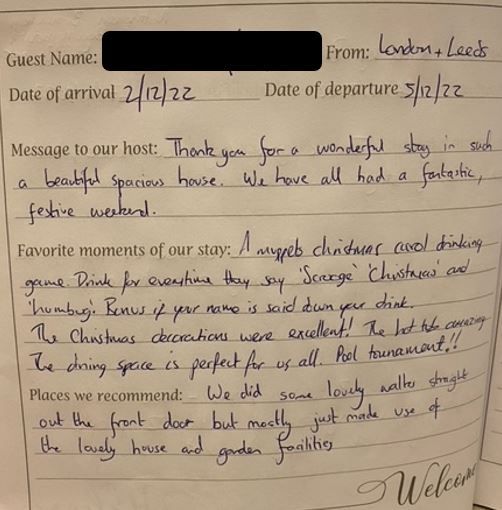 Guest Name: From: London + Leeds
Date of arrival 2/12/22 Date of departure 5/12/22
Message to our host: Thank you for a wonderful stay in such
a beautiful spacious house. We have all had a fantastic,
festive weekend.
Favorite moments of our stay: A muppets christmas carol drinking
game. Drink for everytime they say 'Scrooge' 'Christmas' and
'humbug'. Bonus if your name is said down your drink.
The Christmas decorations were excellent! The hot tub amazing
The dining space is perfect for us all. Pool tournament!!
Places we recommend: We did some lovely walks straight
out the front door but mostly just made use of
the lovely house and garden facilities
Welcome